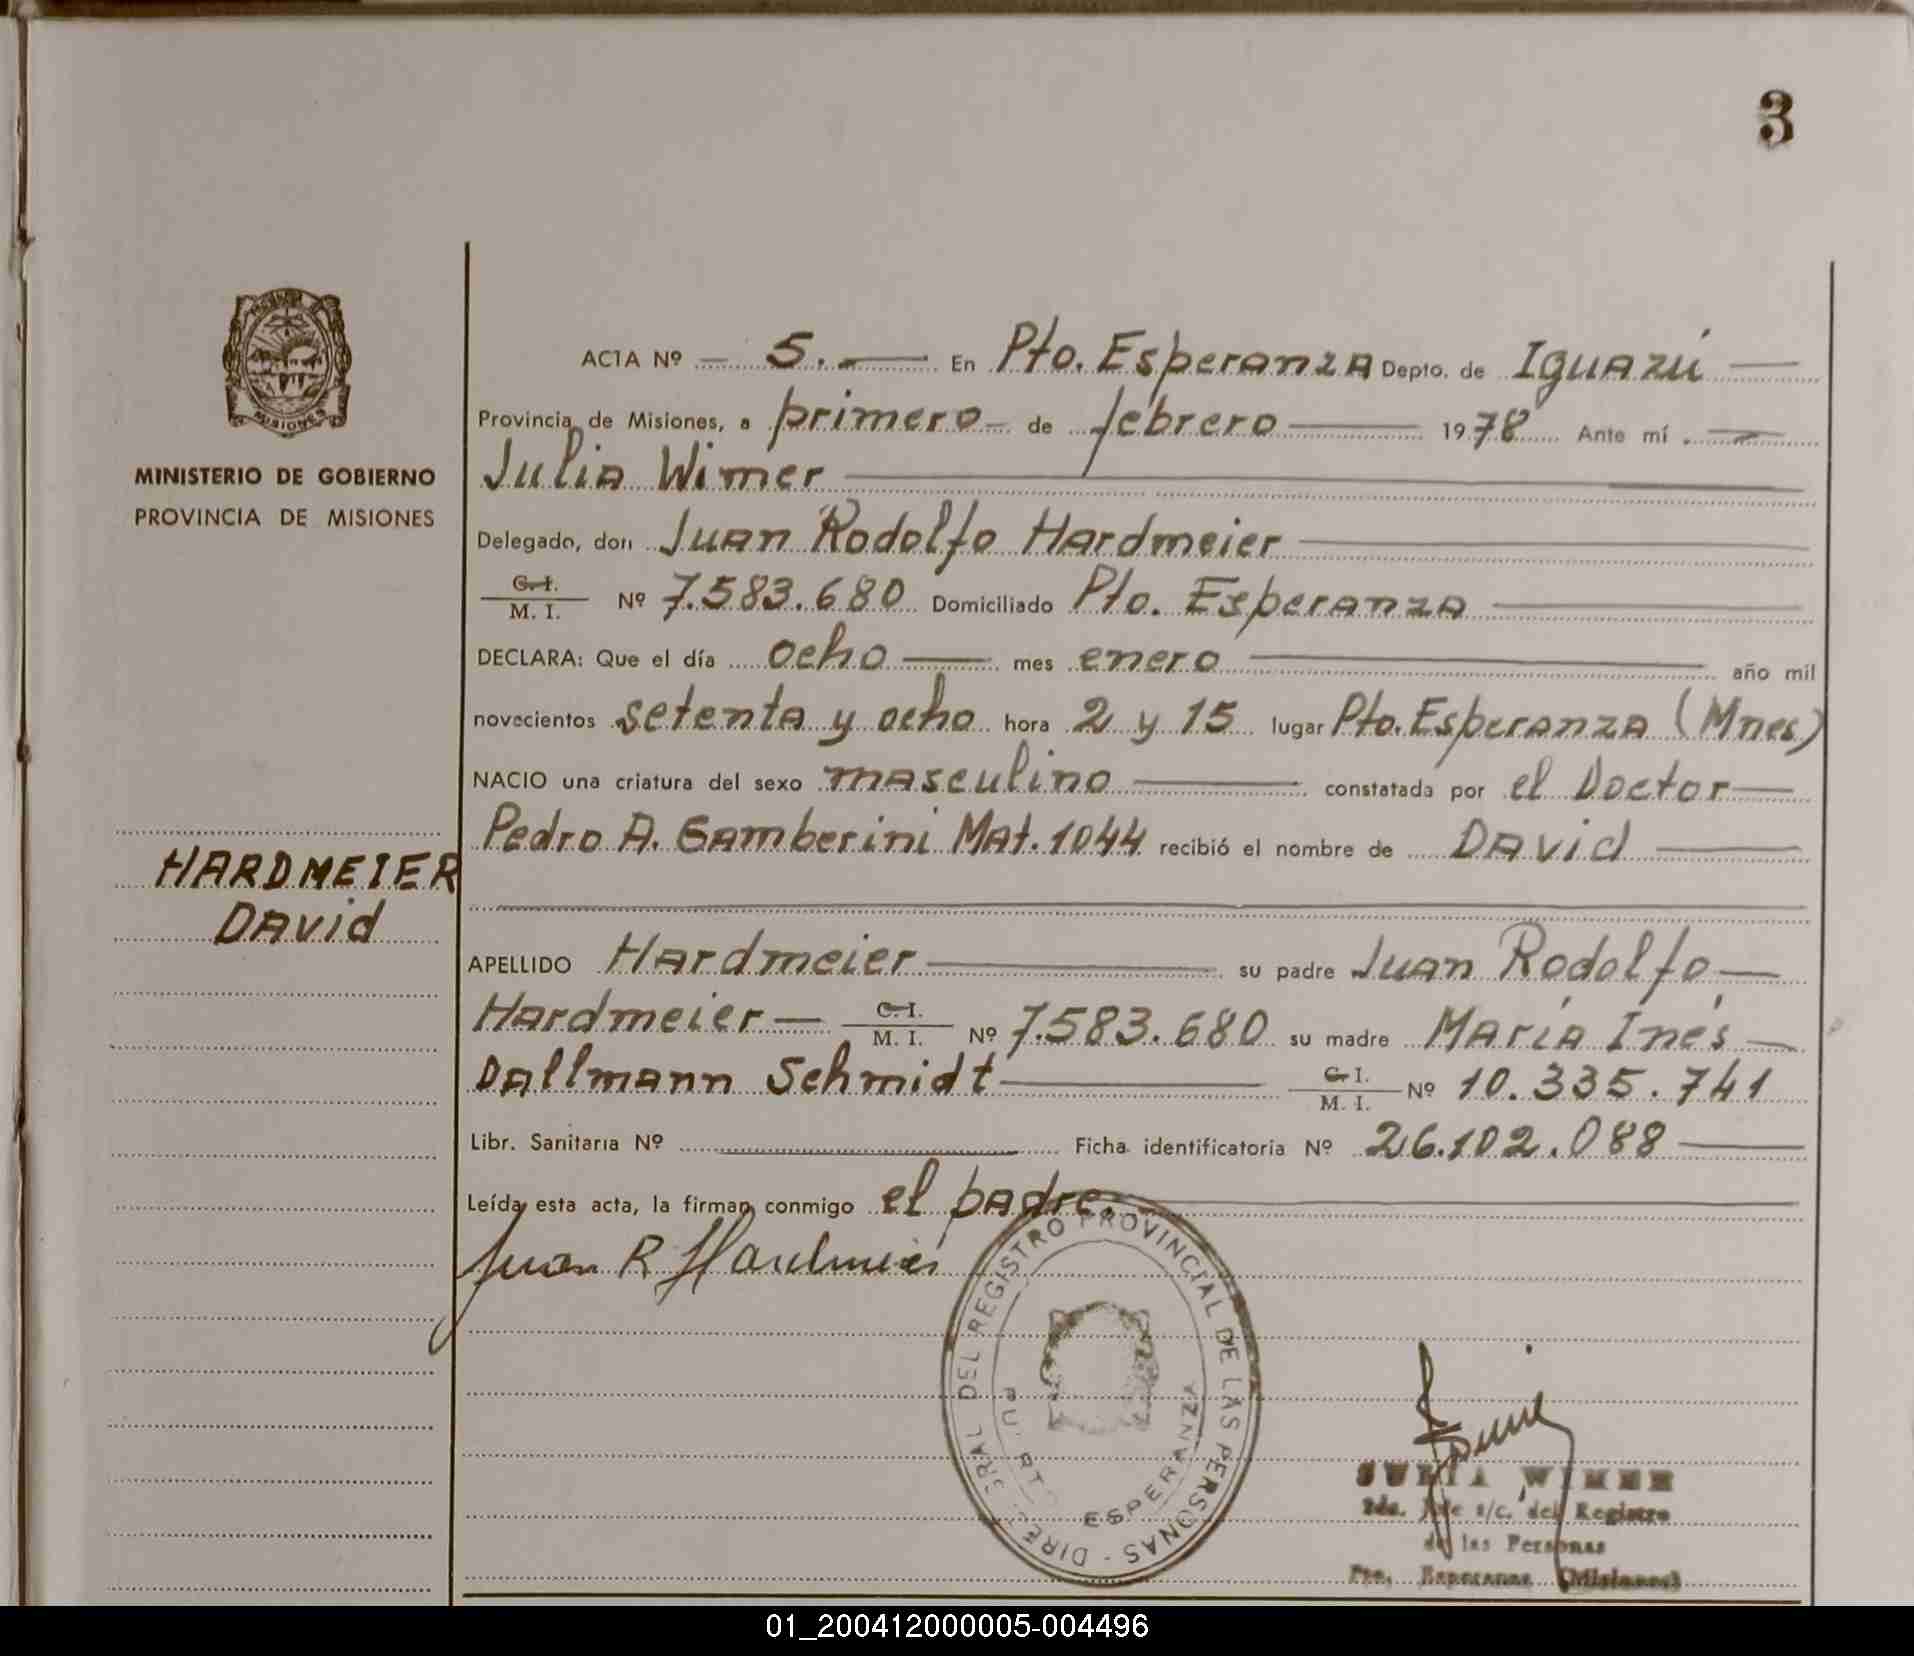 3
MISIONES
MINISTERIO DE GOBIERNO
PROVINCIA DE MISIONES
HARDMEIER
David
ACTA Nº 5. En Pto. Esperanza Depto. de Iguazú
Provincia de Misiones, a primero de febrero 1978 Ante mí
Julia Wimer
Delegado, don Juan Rodolfo Hardmeier
C. I. M. I. Nº 7.583.680 Domiciliado Pto. Esperanza
DECLARA: Que el día ocho mes enero año mil
novecientos setenta y ocho hora 2 y 15 lugar Pto. Esperanza (Mnes)
NACIO una criatura del sexo masculino constatada por el Doctor
Pedro A. Gamberini Mat. 1044 recibió el nombre de David
APELLIDO Hardmeier su padre Juan Rodolfo
Hardmeier C. I. M. I. Nº 7.583.680 su madre María Inés
Dallmann Schmidt C. I. M. I. Nº 10.335.741
Libr. Sanitaria Nº Ficha identificatoria Nº 26.102.088
Leída esta acta, la firman conmigo el padre.
Juan R Hardmeier
DEL REGISTRO PROVINCIAL DE LAS PERSONAS
ESPERANZA
JULIA WIMER
2da. Jefe s/c. del Registro
de las Personas
Pto. Esperanza (Misiones)
01_200412000005-004496